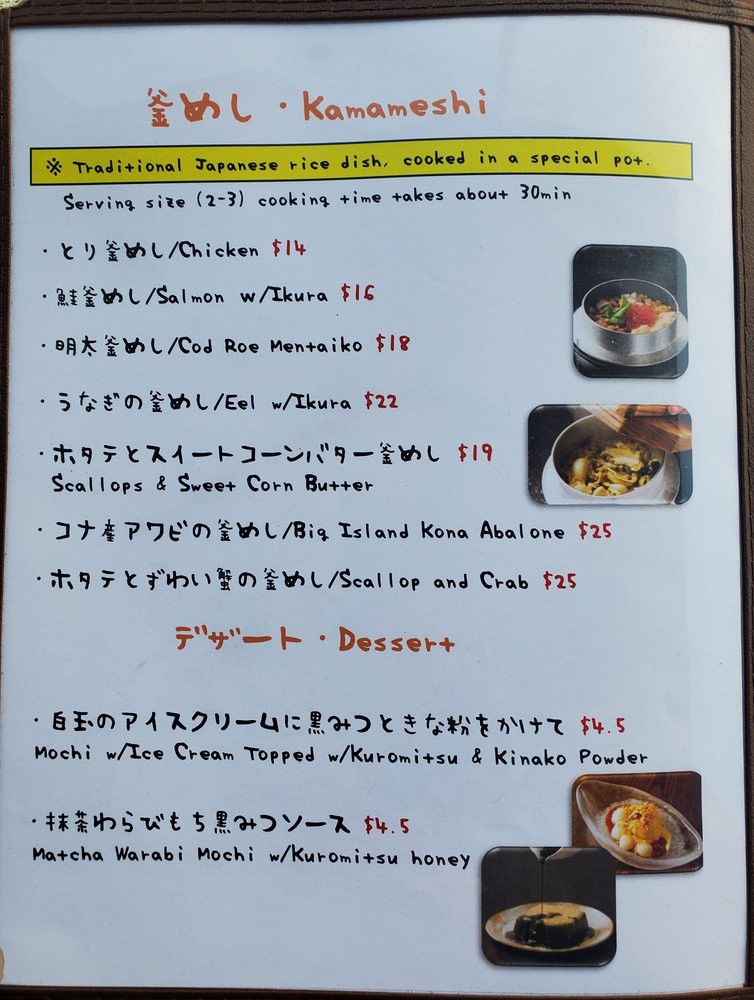 釜めし・Kamameshi
※ Traditional Japanese rice dish, cooked in a special pot.
Serving size (2-3) cooking time takes about 30min
・とり釜めし/Chicken $14
・鮭釜めし/Salmon w/Ikura $16
・明太釜めし/Cod Roe Mentaiko $18
・うなぎの釜めし/Eel w/Ikura $22
・ホタテとスイートコーンバター釜めし $19
Scallops & Sweet Corn Butter
・コナ産アワビの釜めし/Big Island Kona Abalone $25
・ホタテとずわい蟹の釜めし/Scallop and Crab $25
デザート・Dessert
・白玉のアイスクリームに黒みつときな粉をかけて $4.5
Mochi w/Ice Cream Topped w/Kuromitsu & Kinako Powder
・抹茶わらびもち黒みつソース $4.5
Matcha Warabi Mochi w/Kuromitsu honey